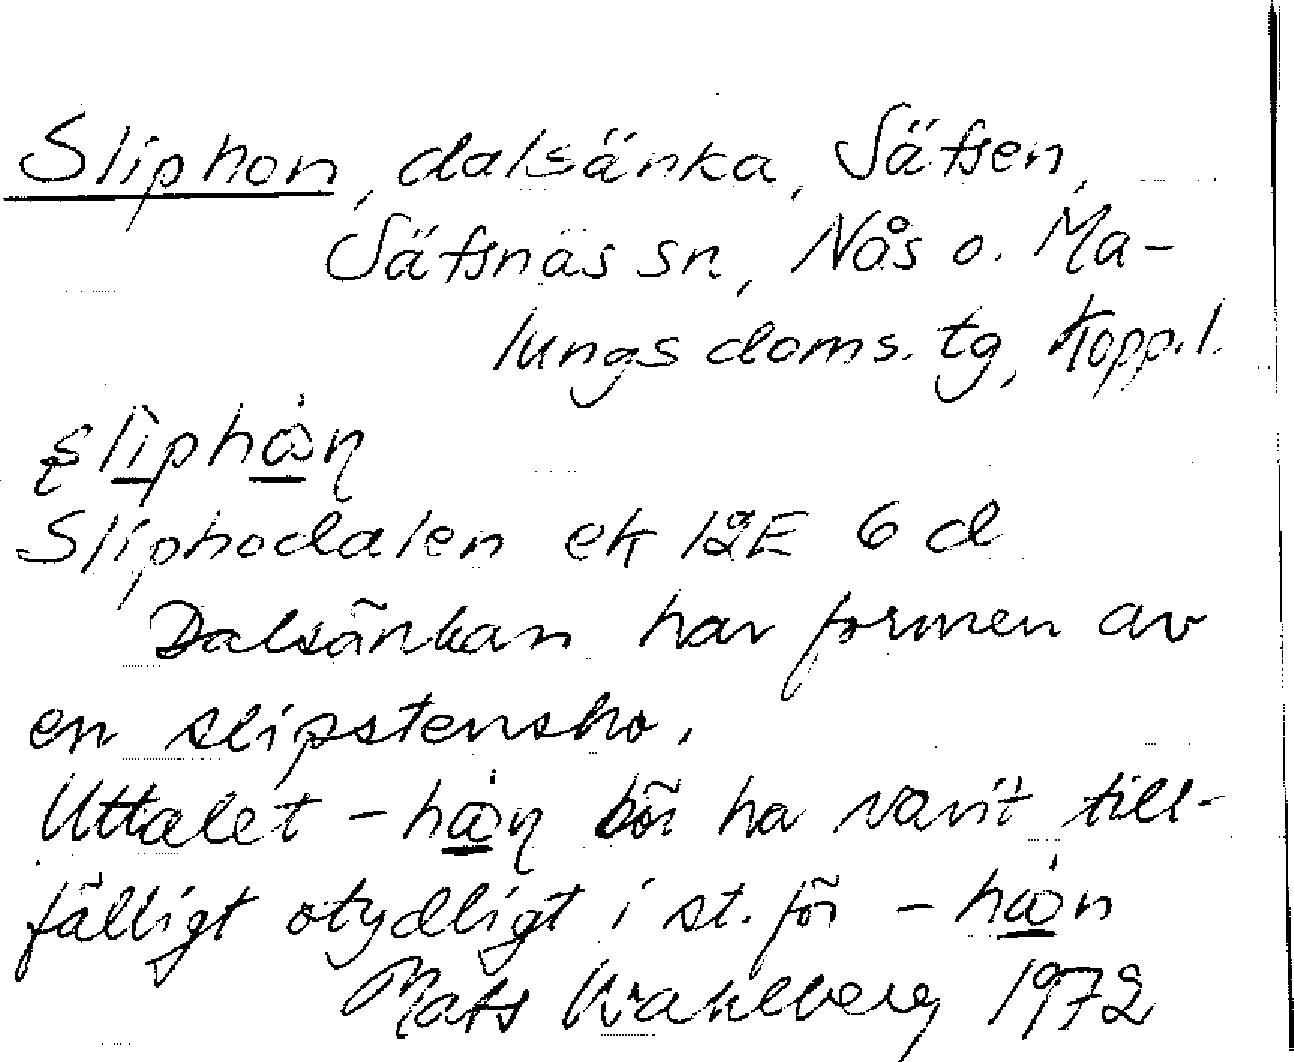 Sliphon, dalsänka, Säfsen,
Säfsnäs sn, Nås o. Ma-
lungs doms. tg, Kopp.l.
Sliphodalen ek 12E 6 d
Dalsänkan har formen av
en slipstensho.
Uttalet bör ha varit till-
fälligt otydligt i st. för
Mats Wahlberg 1972